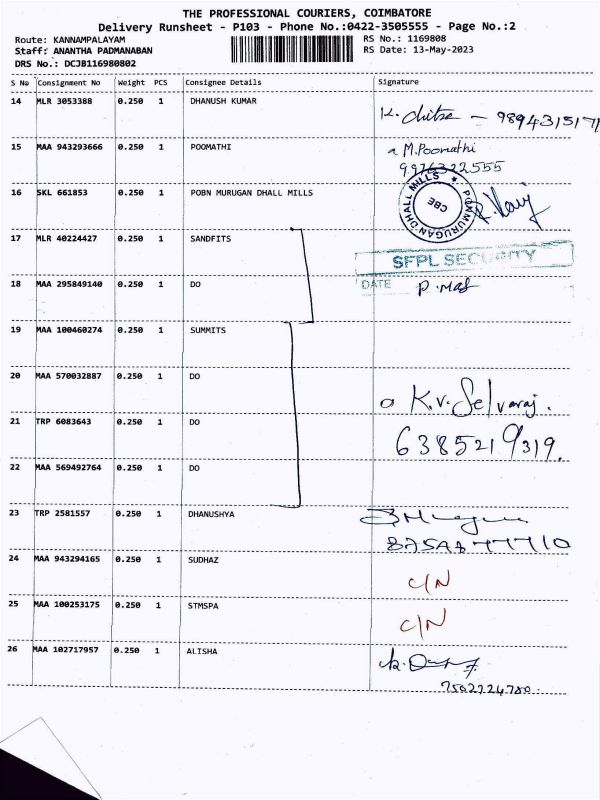 THE PROFESSIONAL COURIERS, COIMBATORE
Delivery Runsheet - P103 - Phone No.:0422-3505555 - Page No.:2
Route: KANNAMPALAYAM RS No.: 1169808
Staff: ANANTHA PADMANABAN RS Date: 13-May-2023
DRS No.: DCJB116980802
S No Consignment No Weight PCS Consignee Details Signature
14 MLR 3053388 0.250 1 DHANUSH KUMAR
K. chitra - 9894315171
15 MAA 943293666 0.250 1 POOMATHI
M.Poomathi
9976322555
16 SKL 661853 0.250 1 POBN MURUGAN DHALL MILLS
PONMURUGAN DHALL MILLS CBE
17 MLR 40224427 0.250 1 SANDFITS
SFPL SECURITY
18 MAA 295849140 0.250 1 DO
DATE
19 MAA 100460274 0.250 1 SUMMITS
20 MAA 570032887 0.250 1 DO
K.V. Selvaraj.
21 TRP 6083643 0.250 1 DO
6385219319.
22 MAA 569492764 0.250 1 DO
23 TRP 2581557 0.250 1 DHANUSHYA
24 MAA 943294165 0.250 1 SUDHAZ
C/N
25 MAA 100253175 0.250 1 STMSPA
C/N
26 MAA 102717957 0.250 1 ALISHA
7502224780.